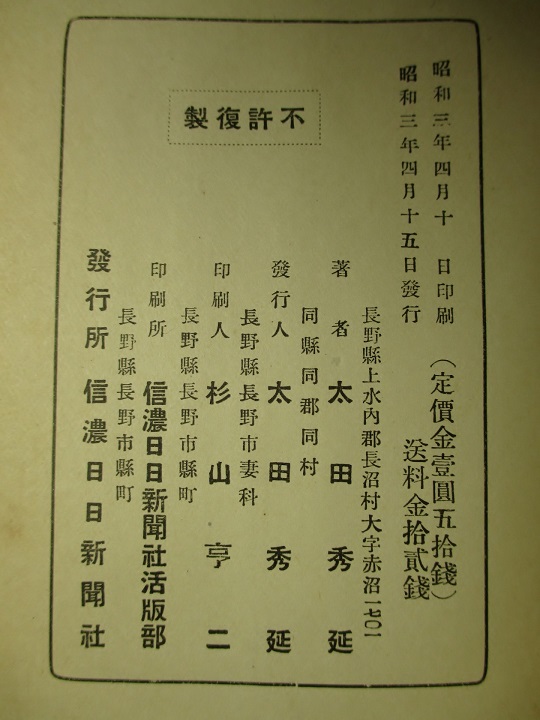 昭和三年四月十 日印刷
昭和三年四月十五日發行
(定價金壹圓五拾錢)
送料金拾貳錢
不許復製
長野縣上水內郡長沼村大字赤沼一七〇一
著者 太田秀延
同縣同郡同村
發行人 太田秀延
長野縣長野市妻科
印刷人 杉山亨二
長野縣長野市縣町
印刷所 信濃日日新聞社活版部
長野縣長野市縣町
發行所 信濃日日新聞社